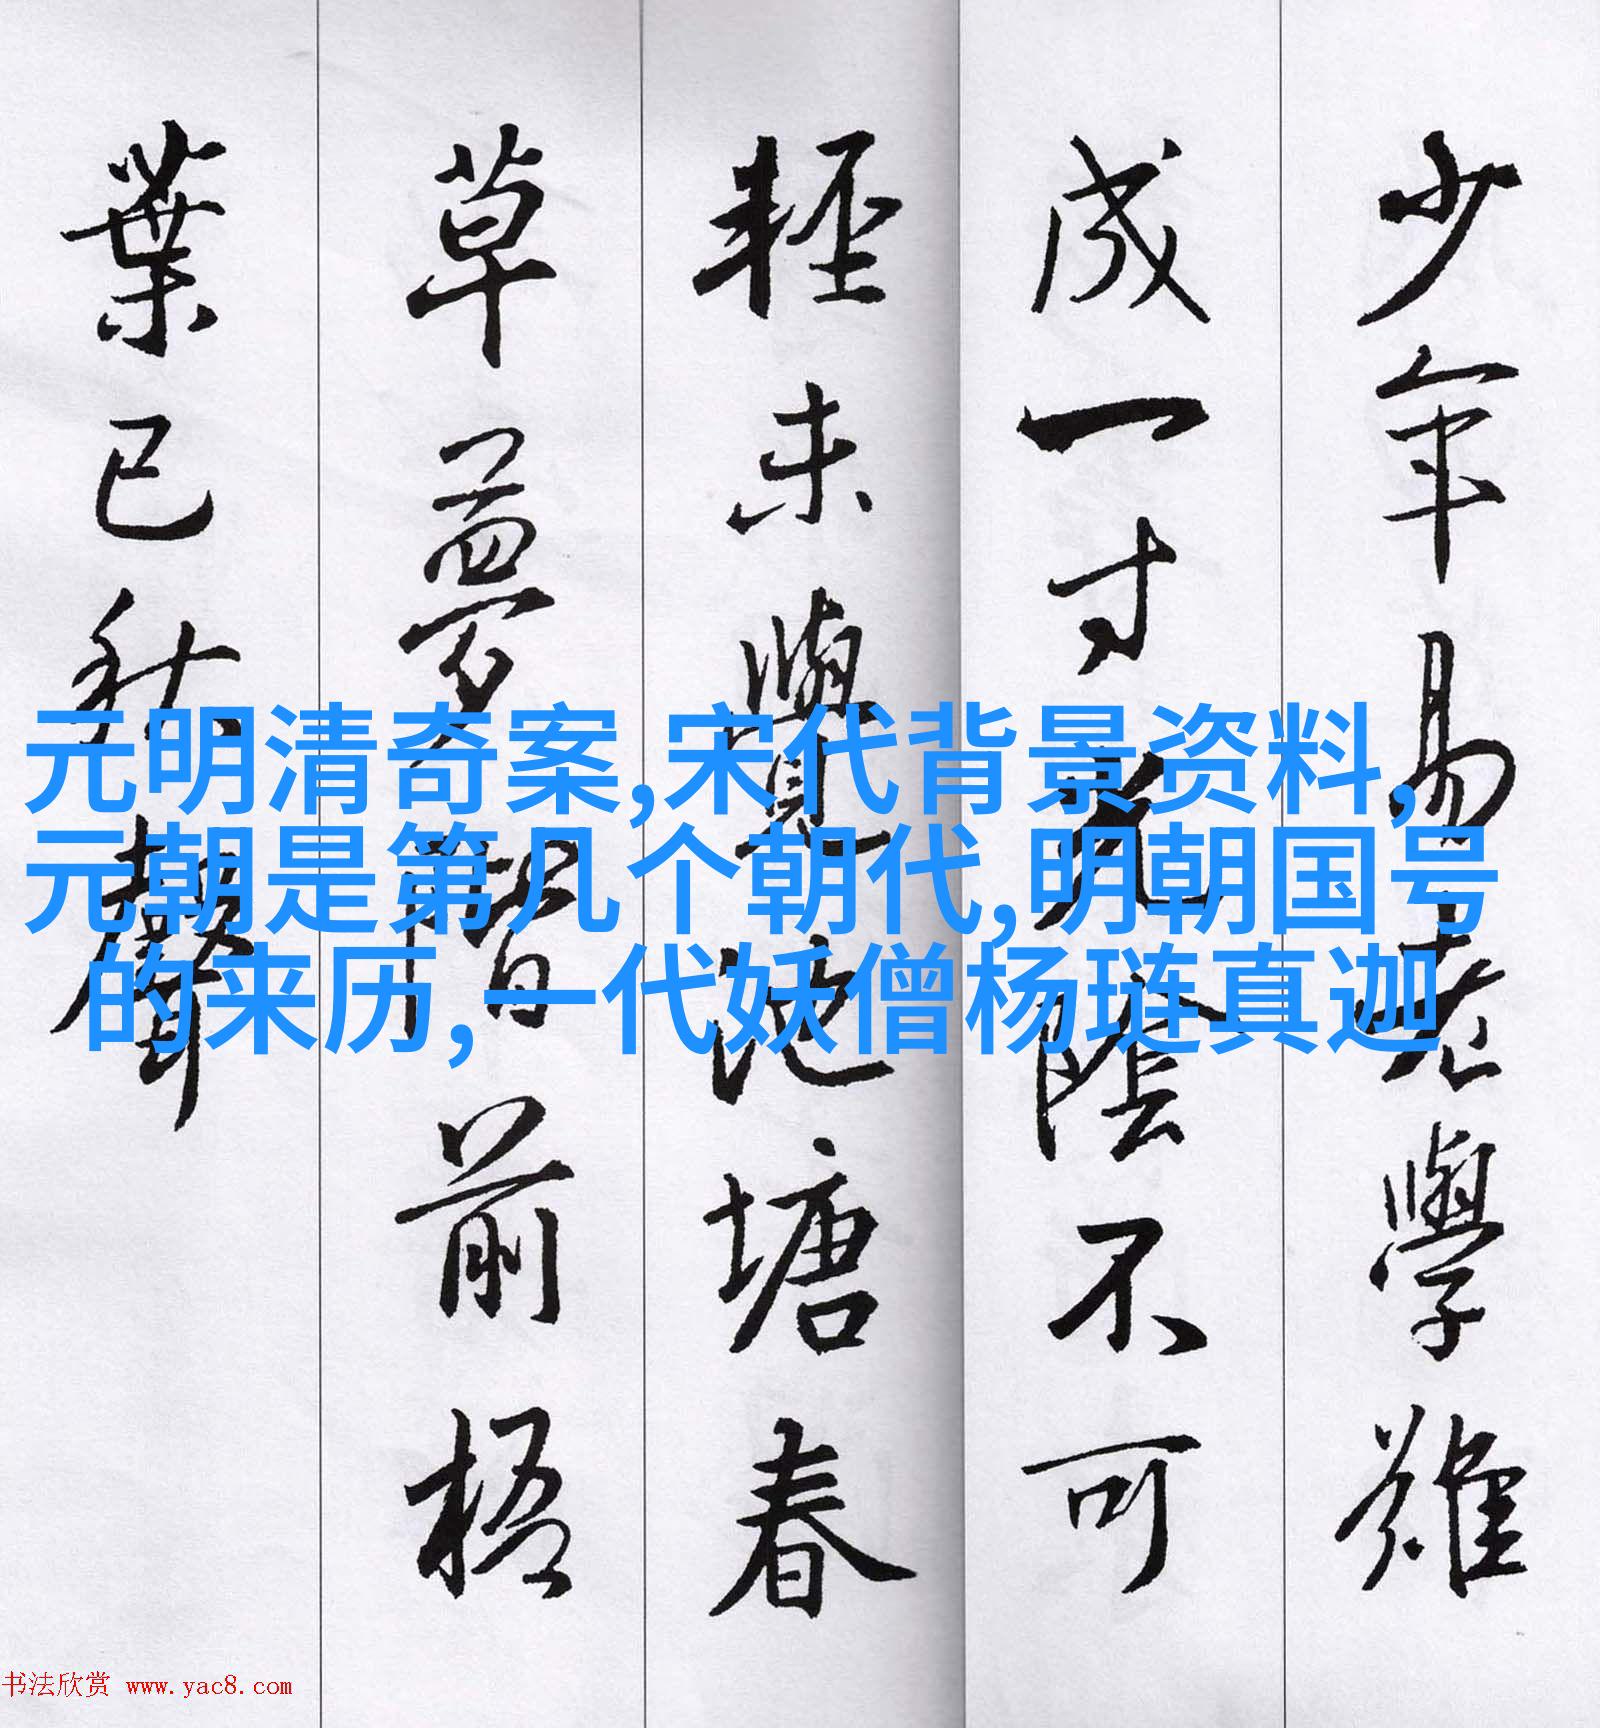 少年易老學難
成一寸光陰不可
輕未覺池塘春
草夢階前梧
葉已秋聲
元明清奇案,宋代背景资料,
元朝是第几个朝代,明朝国号
的来历,一代妖僧杨琏真迦
书法欣赏 www.yac8.com